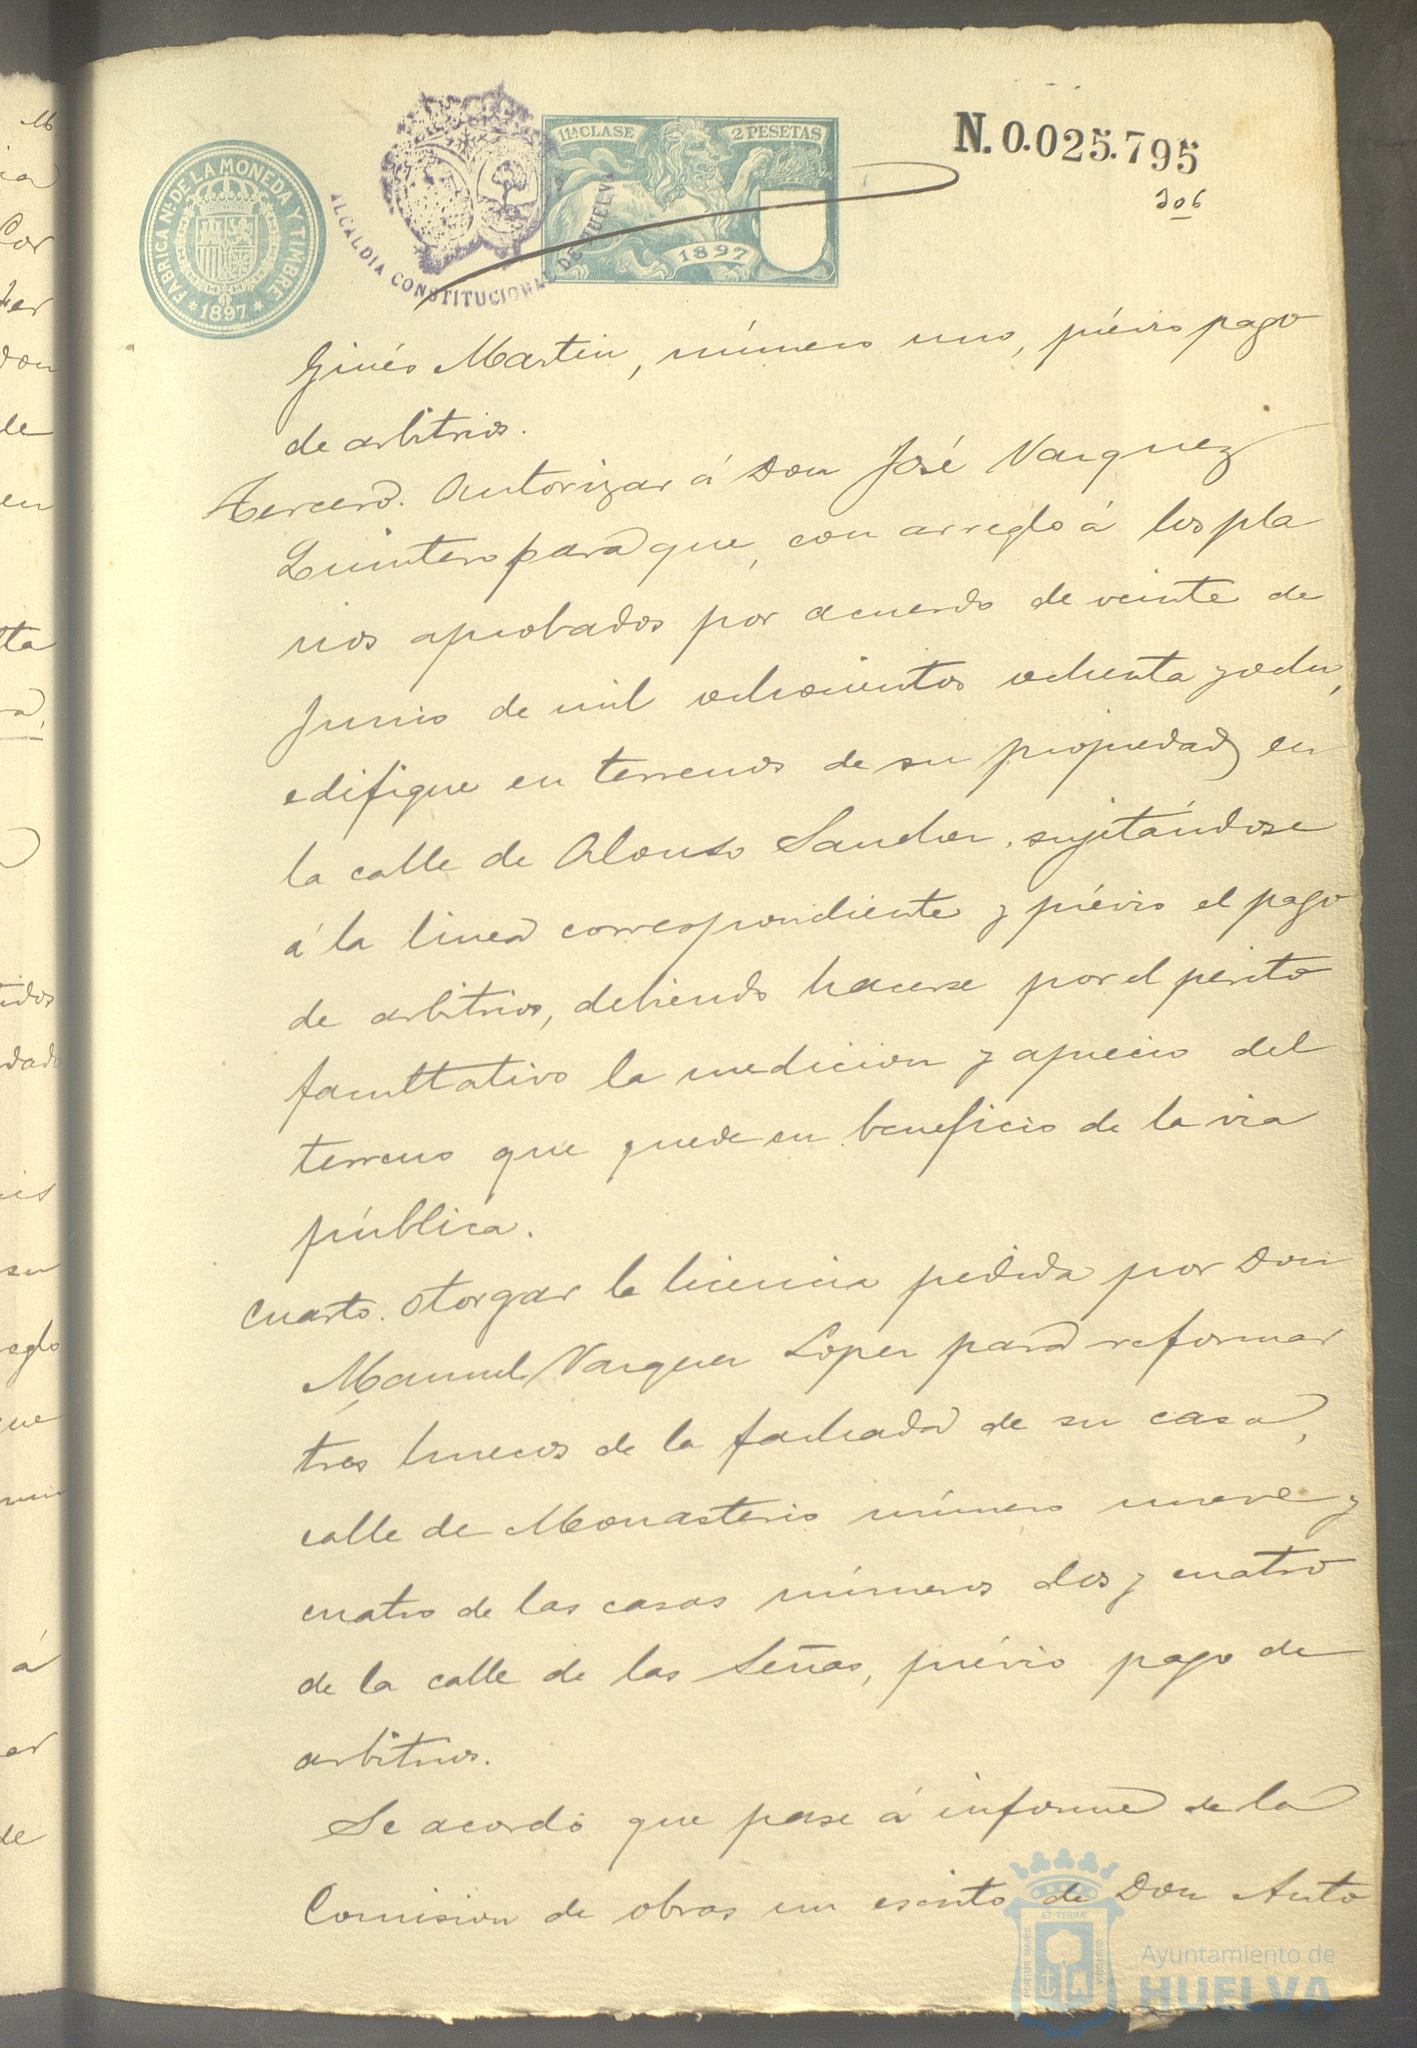 FABRICA Nl. DE LA MONEDA Y TIMBRE
* 1897 *
ALCALDIA CONSTITUCIONAL DE HUELVA
11ª CLASE 2 PESETAS
1897
N. 0.025.795
306
Ginés Martin, número uno, prévio pago
de arbitrios.
Tercero. Autorizar á Don José Vazquez
Quintero para que, con arreglo á los pla
nos aprobados por acuerdo de veinte de
Junio de mil ochocientos ochenta y ocho,
edifique en terrenos de su propiedad en
la calle de Alonso Sanchez, sujetándose
á la linea correspondiente y prévio el pago
de arbitrios, debiendo hacerse por el perito
facultativo la medicion y aprecio del
terreno que quede en beneficio de la via
pública.
Cuarto. Otorgar la licencia pedida por Don
Manuel Vazquez Lopez para reformar
tres huecos de la fachada de su casa,
calle de Monasterio número nueve y
cuatro de las casas números dos y cuatro
de la calle de las Señas, prévio pago de
arbitrios.
Se acordó que pase á informe de la
Comision de obras un escrito de Don Anto
Ayuntamiento de
HUELVA